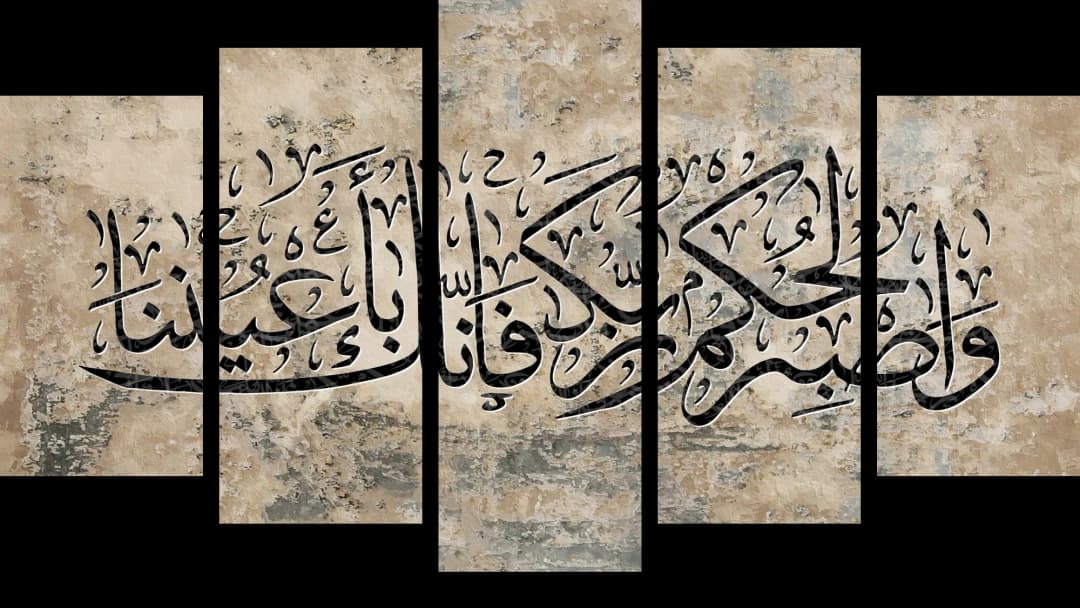 وَاصْبِرْ لِحُكْمِ رَبِّكَ فَإِنَّكَ بِأَعْيُنِنَا